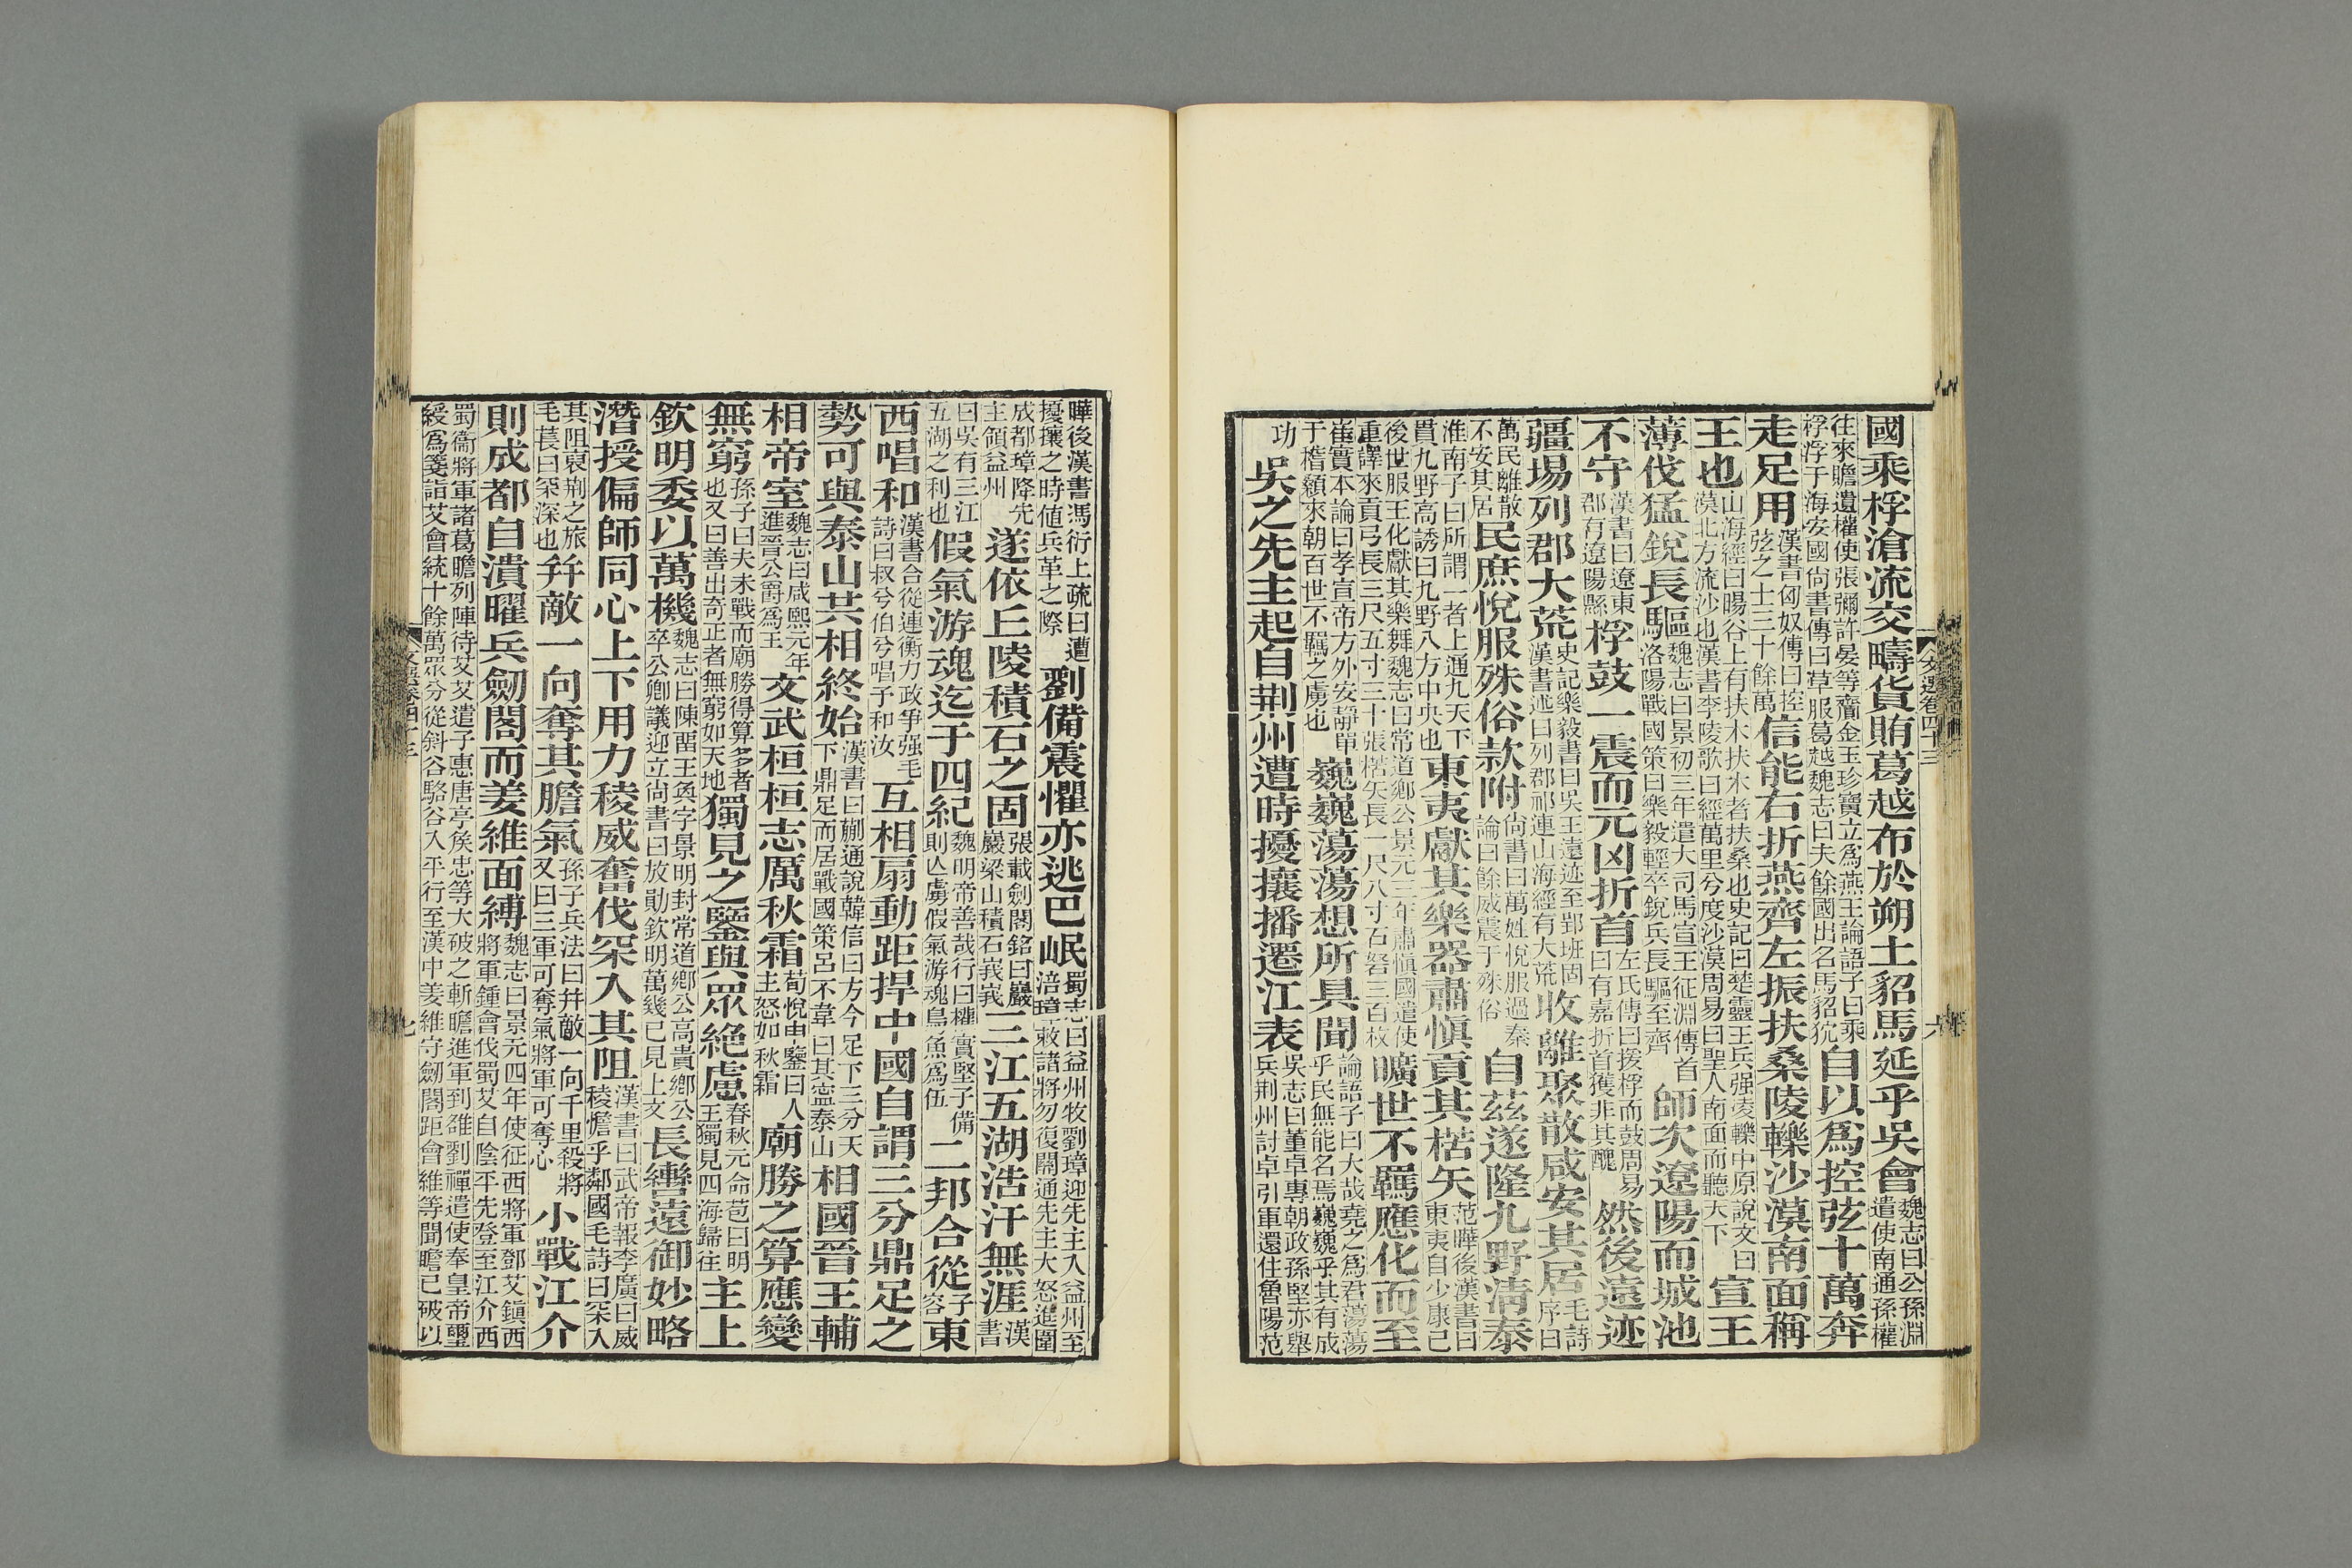 國乘桴滄流交疇貨賄葛越布於朔土貂馬延乎吳會魏志曰公孫淵遣使南通孫權
往來贍遺權使張彌許晏等齎金玉珍寶立爲燕王論語子曰乘桴浮于海安國尙書傳曰草服葛越魏志曰夫餘國出名馬貂狖自以爲控弦十萬奔
走足用漢書匈奴傳曰控弦之士三十餘萬信能右折燕齊左振扶桑陵轢沙漠南面稱
王也山海經曰暘谷上有扶木扶木者扶桑也史記曰楚靈王兵强凌轢中原說文曰漠北方流沙也漢書李陵歌曰經萬里兮度沙漠周易曰聖人南面而聽天下宣王
薄伐猛銳長驅魏志曰景初三年遣大司馬宣王征淵傳首洛陽戰國策曰樂毅輕卒銳兵長驅至齊師次遼陽而城池
不守漢書曰遼東郡有遼陽縣桴鼓一震而元凶折首左氏傳曰援桴而鼓周易曰有嘉折首獲非其醜然後遠迹
疆場列郡大荒史記樂毅書曰吳王遠迹至郢班固漢書述曰列郡祁連山海經有大荒收離聚散咸安其居毛詩序曰
萬民離散不安其居民庶悅服殊俗款附尙書曰萬姓悅服過秦論曰餘威震于殊俗自茲遂隆九野淸泰
淮南子曰所謂一者上通九天下貫九野高誘曰九野八方中央也東夷獻其樂器肅愼貢其楛矢范曄後漢書曰東夷自少康已
後世服王化獻其樂舞魏志曰常道鄉公景元三年肅愼國遣使重譯來貢弓長三尺五寸三十張楛矢長一尺八寸石砮三百枚曠世不羈應化而至
崔寔本論曰孝宣帝方外安靜單于稽顙來朝百世不羈之虜也巍巍蕩蕩想所具聞論語子曰大哉堯之爲君蕩蕩乎民無能名焉巍巍乎其有成
功吳之先主起自荆州遭時擾攘播遷江表吳志曰董卓專朝政孫堅亦舉兵荆州討卓引軍還住魯陽范
文選卷四十三
六
曄後漢書馮衍上疏曰遭擾攘之時値兵革之際劉備震懼亦逃巴岷蜀志曰益州牧劉璋迎先主入益州至涪璋敕諸將勿復關通先主大怒進圍
成都璋降先主領益州遂依丘陵積石之固張載劍閣銘曰巖巖梁山積石峩峩三江五湖浩汗無涯漢書
曰吳有三江五湖之利也假氣游魂迄于四紀魏明帝善哉行曰權實堅子備則亾虜假氣游魂鳥魚爲伍二邦合從東
西唱和漢書合從連衡力政爭强毛詩曰叔兮伯兮唱予和汝互相扇動距捍中國自謂三分鼎足之
勢可與泰山共相終始漢書曰蒯通說韓信曰方今足下三分天下鼎足而居戰國策呂不韋曰其寍泰山相國晉王輔
相帝室魏志曰咸熙元年進晉公爵爲王文武桓桓志厲秋霜荀悅申鑒曰人主怒如秋霜廟勝之算應變
無窮孫子曰夫未戰而廟勝得算多者也又曰善出奇正者無窮如天地獨見之鑒與眾絶慮春秋元命苞曰明王獨見四海歸往主上
欽明委以萬機魏志曰陳畱王奐字景明封常道鄉公高貴鄉公卒公卿議迎立尙書曰放勛欽明萬幾已見上文長轡遠御妙略
潛授偏師同心上下用力稜威奮伐罙入其阻漢書曰武帝報李廣曰威稜憺乎鄰國毛詩曰罙入
其阻裒荆之旅毛萇曰罙深也幷敵一向奪其膽氣孫子兵法曰幷敵一向千里殺將又曰三軍可奪氣將軍可奪心小戰江介
則成都自潰曜兵劒閣而姜維面縛魏志曰景元四年使征西將軍鄧艾鎭西將軍鍾會伐蜀艾自陰平先登至江介西
蜀衞將軍諸葛瞻列陣待艾艾遣子惠唐亭矦忠等大破之斬瞻進軍到雒劉禪遣使奉皇帝璽綬爲箋詣艾會統十餘萬眾分從斜谷駱谷入平行至漢中姜維守劒閣距會維等聞瞻已破以
七